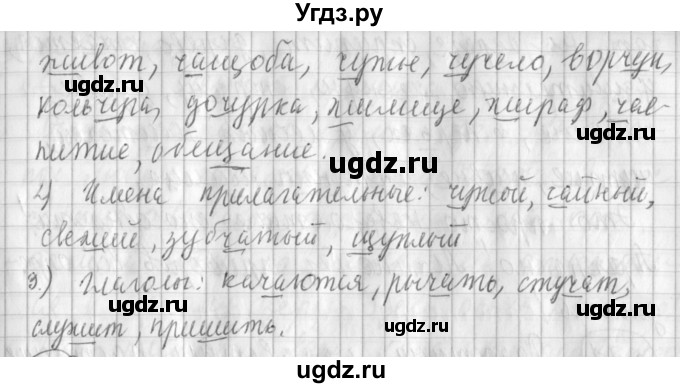 Угдз.ру
живот, чащоба, чужые, чучело, ворчун,
ugdz.ru ugdz.ru
кольчуга, дочурка, жилище, жираф, чае-
ugdz.ru
питие, обещание.
ugdz.ru
2) Имена прилагательные: чужой, чайный,
свежий, зубчатый, щуплый
ugdz.ru ugdz.ru
3.) Глаголы: качаются, рычать, стучат,
служит, пришить.
ugdz.ru ugdz.ru
ugdz.ru